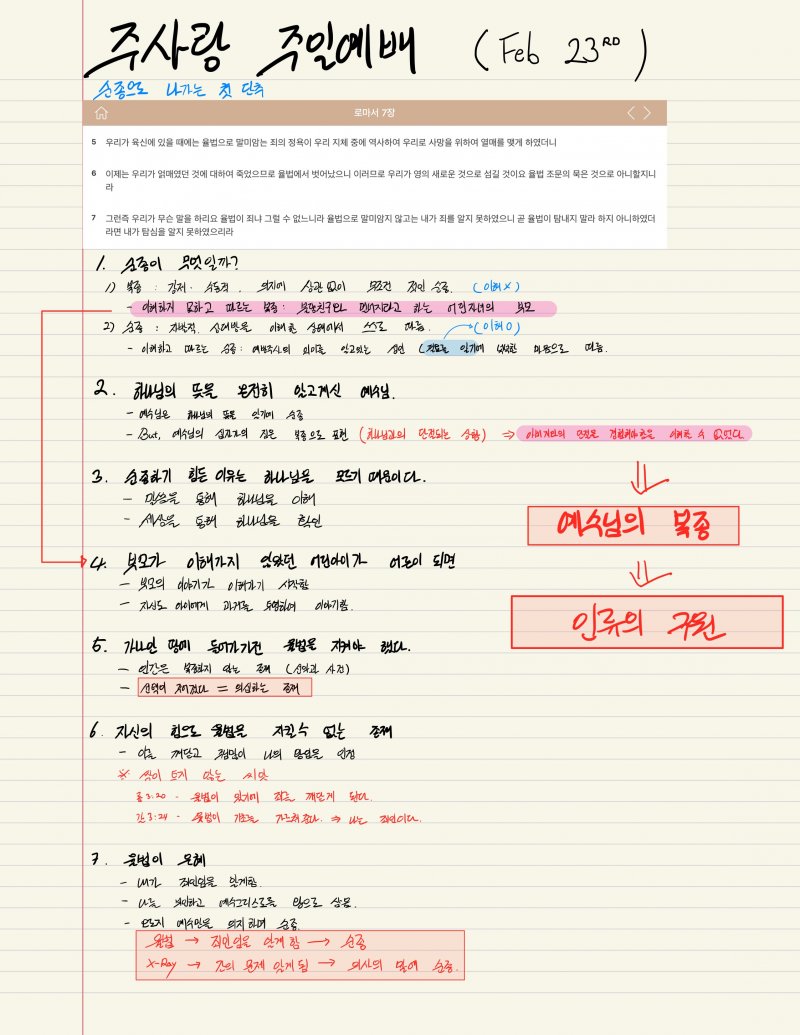 주사랑 주일예배 (Feb 23RD)
순종으로 나가는 첫 단추
로마서 7장
5 우리가 육신에 있을 때에는 율법으로 말미암는 죄의 정욕이 우리 지체 중에 역사하여 우리로 사망을 위하여 열매를 맺게 하였더니
6 이제는 우리가 얽매였던 것에 대하여 죽었으므로 율법에서 벗어났으니 이러므로 우리가 영의 새로운 것으로 섬길 것이요 율법 조문의 묵은 것으로 아니할지니
라
7 그런즉 우리가 무슨 말을 하리요 율법이 죄냐 그럴 수 없느니라 율법으로 말미암지 않고는 내가 죄를 알지 못하였으니 곧 율법이 탐내지 말라 하지 아니하였더
라면 내가 탐심을 알지 못하였으리라
1. 순종이 무엇일까?
1) 복종 : 강제·수동적. 의지에 상관없이 무조건 적인 순종. (이해 X)
- 이해하지 못하고 따르는 복종 : 불량친구와 멀어지라고 하는 어린자녀의 부모
2) 순종 : 자발적. 상대방을 이해한 상태에서 스스로 따름. (이해 O)
- 이해하고 따르는 순종 : 예방주사의 의미를 알고있는 성인 (필요를 알기에 넉넉한 마음으로 따름.
2. 하나님의 뜻을 온전히 알고계신 예수님.
- 예수님은 하나님의 뜻을 알기에 순종
- But, 예수님의 십자가의 길은 복종으로 표현 (하나님과의 단절되는 상황) ⇒ 아버지와의 단절을 경험해야 함을 이해할 수 없었다.
3. 순종하기 힘든 이유는 하나님을 모르기 때문이다.
- 말씀을 통해 하나님을 이해
- 세상을 통해 하나님을 확인
예수님의 복종
인류의 구원
4. 부모가 이해가지 않았던 어린아이가 어른이 되면
- 부모의 이야기가 이해가기 시작함
- 자신도 아이에게 과거를 투영하여 이야기함.
5. 가나안 땅에 들어가기전 율법을 지켜야 했다.
- 인간은 복종하지 않는 존재 (선악과 사건)
- 선택이 주어졌다 = 의심하는 존재
6. 자신의 힘으로 율법을 지킬수 없는 존재
- 이를 깨닫고 끊임없이 나의 믿음을 인정
※ 싹이 트지 않는 씨앗
롬 3:20 - 율법이 있기에 죄를 깨닫게 된다.
갈 3:24 - 율법이 기초를 가르쳐준다. ⇒ 나는 죄인이다.
7. 율법의 은혜
- 내가 죄인임을 알게함.
- 나를 의심하고 예수그리스도를 힘으로 삼음.
- 오로지 예수만을 의지하여 순종.
율법 → 죄인임을 알게 함 → 순종
X-Ray → 간의 문제 알게됨 → 의사의 말에 순종.